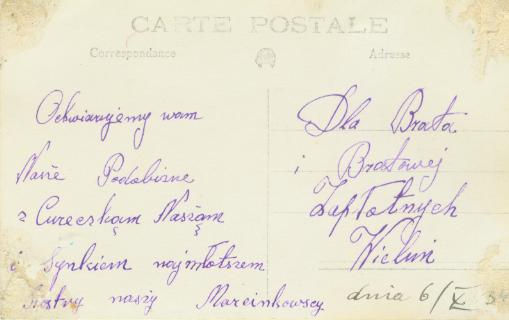 CARTE POSTALE
Correspondance
Adresse
Ofiwiarujemy wam
Nasze Podobizne
z Cureczkąm Nasząm
i Synkiem najmłotszem
Siostry naszy Marcinkowscy
Dla Brata
i Bratowej
Zapłotnych
Wieluń
dnia 6/X 34